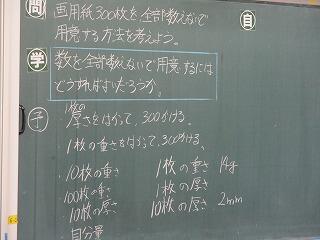 問 画用紙300枚を全部数えないで
用意する方法を考えよう。
自
学 数を全部数えないで用意するには
どうすればよいだろうか。
予
1枚の
厚さをはかって、300かける。
1枚の重さをはかって、300かける。
10枚の重さ 1枚の重さ 14g
100枚の重さ 1枚の厚さ
10枚の厚さ 10枚の厚さ 2mm
自分量